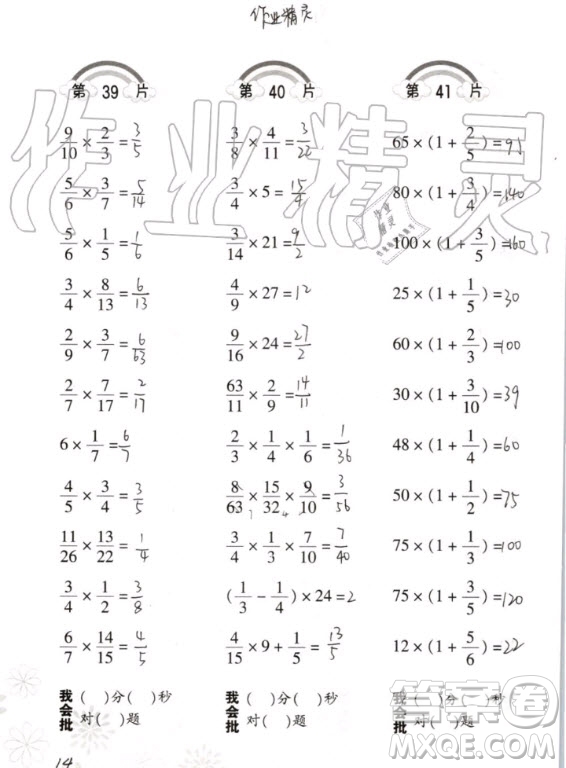 作业精灵
第 39 片
9/10 × 2/3 = 3/5
5/6 × 3/7 = 5/14
5/6 × 1/5 = 1/6
3/4 × 8/13 = 6/13
2/9 × 3/7 = 6/63
2/7 × 7/17 = 2/17
6 × 1/7 = 6/7
4/5 × 3/4 = 3/5
11/26 × 13/22 = 1/4
3/4 × 1/2 = 3/8
6/7 × 14/15 = 4/5
我会批
( )分( )秒
对( )题
第 40 片
3/8 × 4/11 = 3/22
3/4 × 5 = 15/4
3/14 × 21 = 9/2
4/9 × 27 = 12
9/16 × 24 = 27/2
63/11 × 2/9 = 14/11
2/3 × 1/4 × 1/6 = 1/36
8/63 × 15/32 × 9/10 = 3/56
3/4 × 1/3 × 7/10 = 7/40
(1/3 - 1/4) × 24 = 2
4/15 × 9 + 1/5 = 13/5
我会批
( )分( )秒
对( )题
第 41 片
65 × (1 + 2/5) = 91
80 × (1 + 3/4) = 140
100 × (1 + 3/5) = 160
25 × (1 + 1/5) = 30
60 × (1 + 2/3) = 100
30 × (1 + 3/10) = 39
48 × (1 + 1/4) = 60
50 × (1 + 1/2) = 75
75 × (1 + 1/3) = 100
75 × (1 + 3/5) = 120
12 × (1 + 5/6) = 22
我会批
( )分( )秒
对( )题
14
作业精灵
答案圈
MXQE.COM